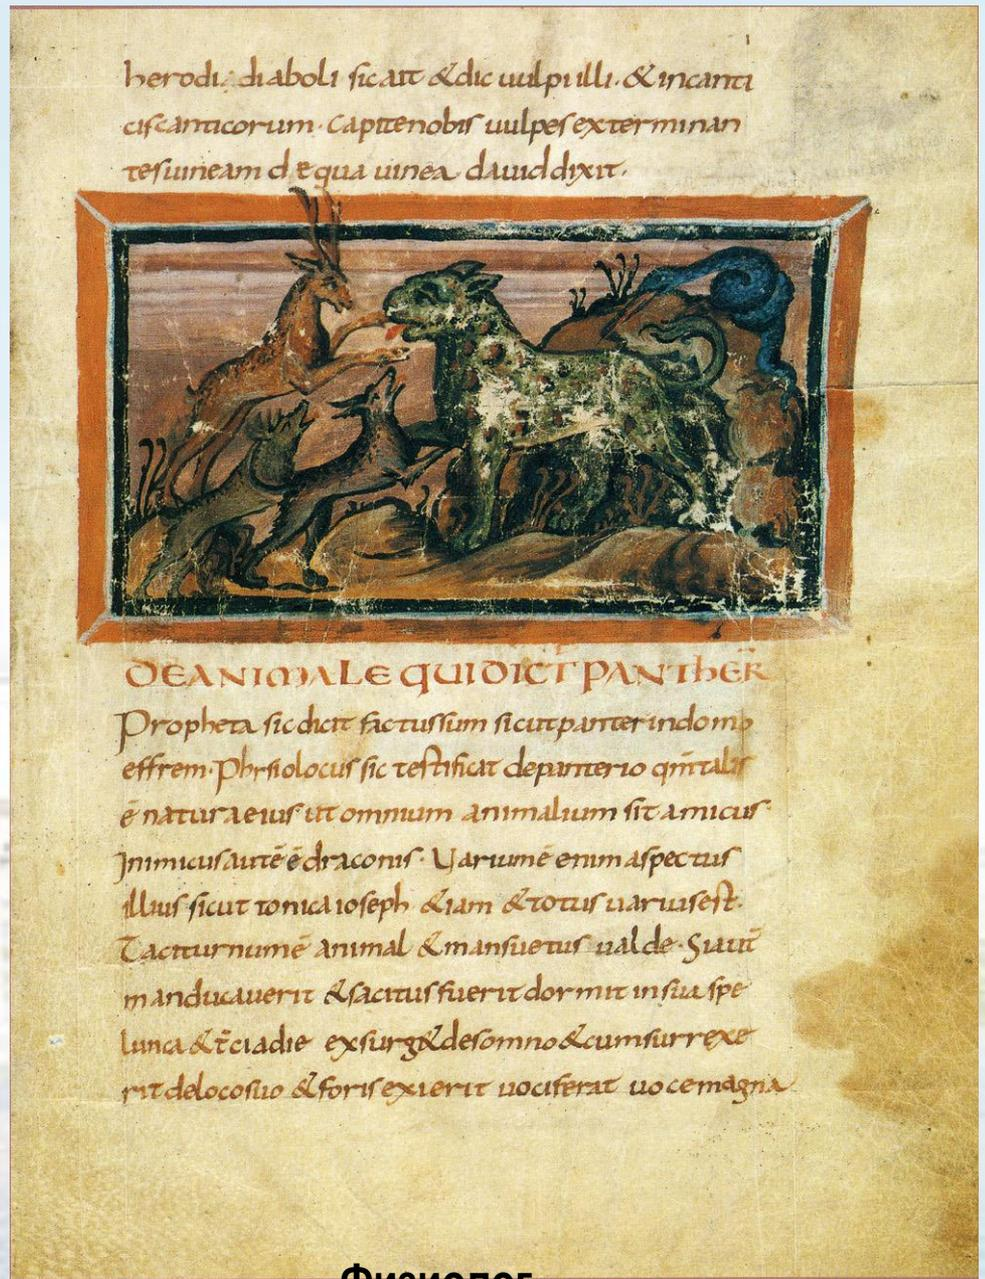 herodi. diaboli sicait &dic uulpi illi. &incanti
ciscanticorum. Capitenobis uulpes exterminan
tesuineam dequa uinea dauid dixit.
DE ANIMALE QUI DICT̄ PANTHER̄
Propheta sic dicit factussum sicut panter indomo
effrem. Phisiolocus sic testificat depanterio qm̄talis
ē natura eius ut omnium animalium sit amicus
Inimicus autē ē draconis. Uariumē enim aspectus
illius sicut tonica ioseph &iam &totus uariusest.
Taciturnumē animal &mansuetus ualde.
manducauerit &sacitus fuerit dormit insua spe
lunca &t̄ciadie exsurg&desomno &cumsurrexe
rit delocosuo &foris exierit uociferat uocemagna
Физиолог